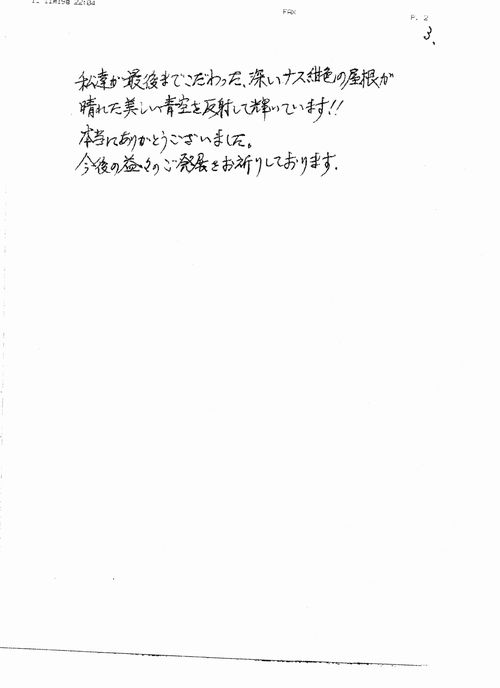 22:04
FAX
P. 2
3.
私達が最後までこだわった、深いナス紺色の屋根が
晴れた美しい青空を反射して輝いています!!
本当にありがとうございました。
今後の益々のご発展をお祈りしております.